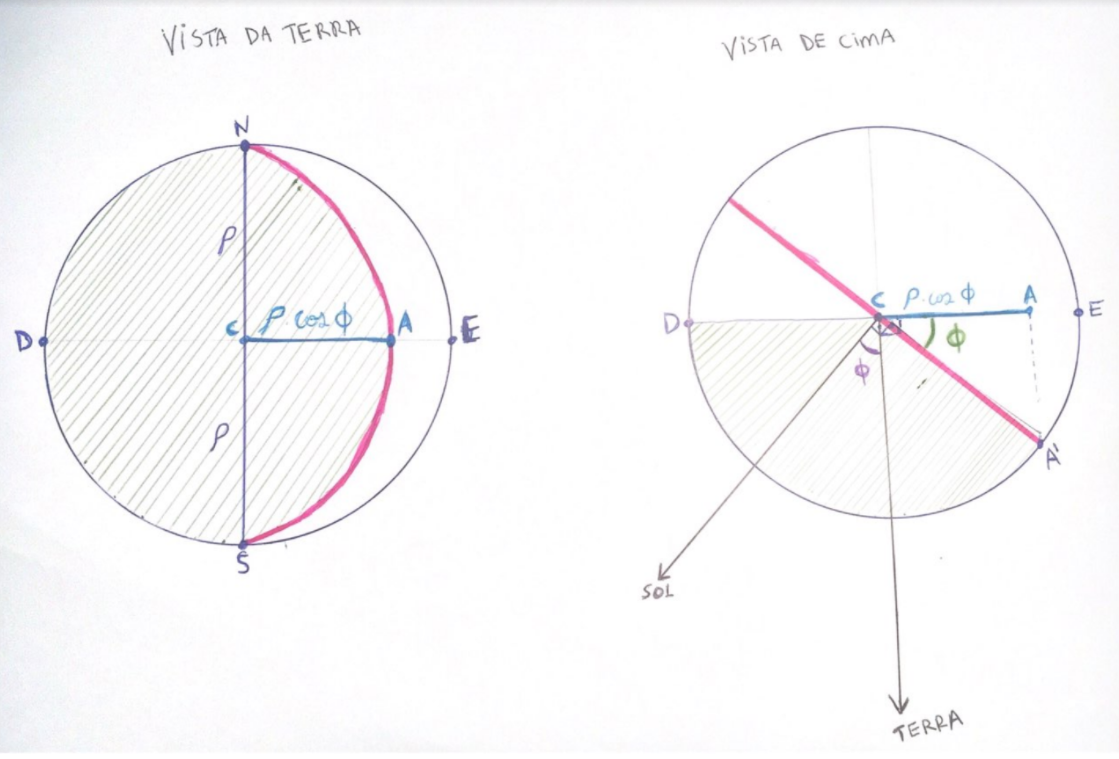 VISTA DA TERRA
N
ρ
C
ρ.cos ϕ
A
D
E
ρ
S
VISTA DE CIMA
C
ρ.cos ϕ
A
D
E
ϕ
ϕ
A'
SOL
TERRA